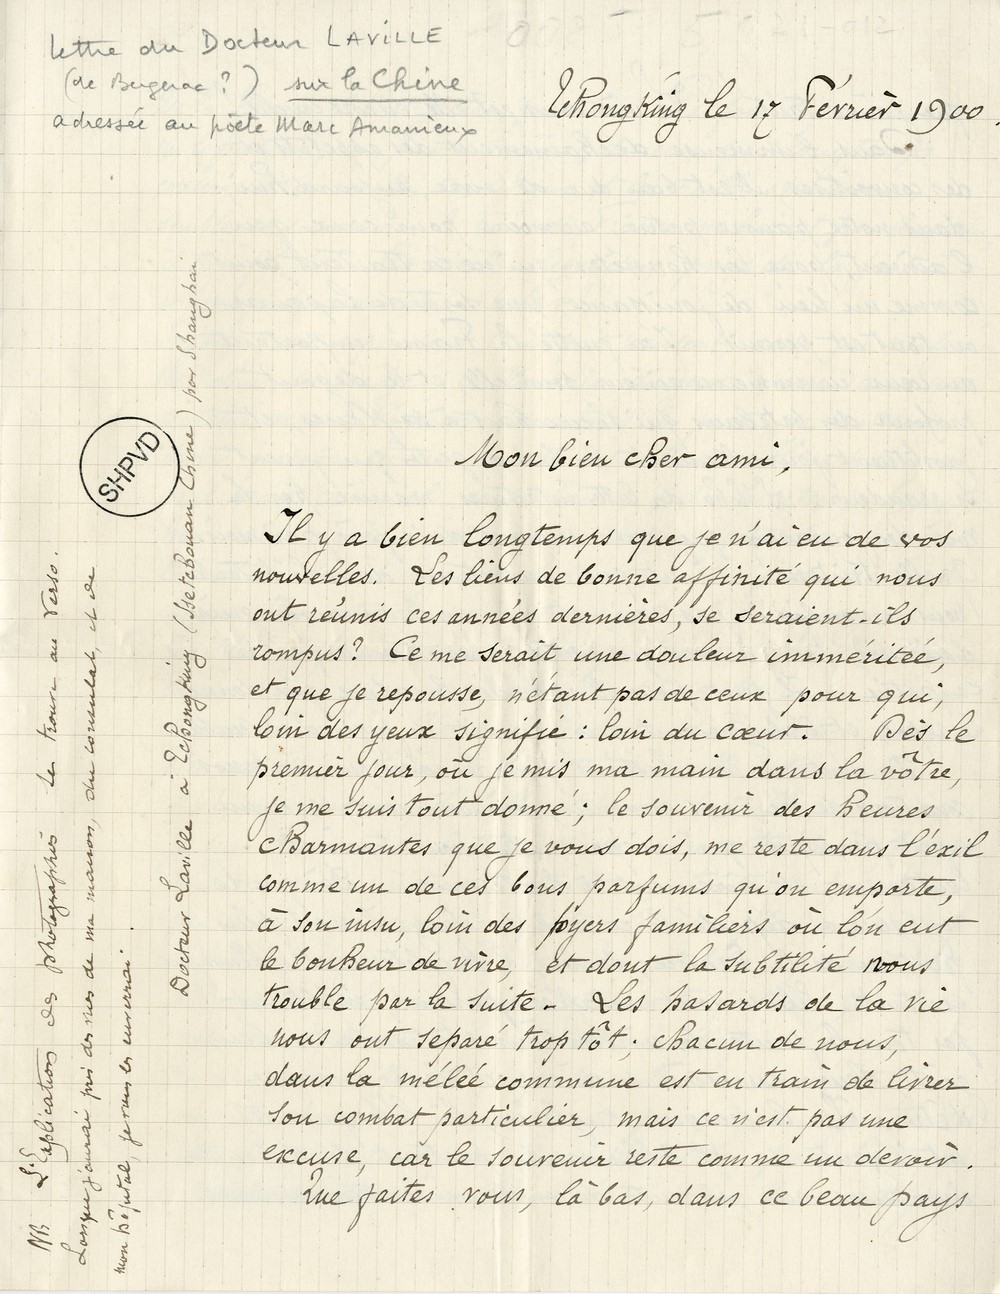 Lettre du Docteur LAVILLE
(de Bergerac ?) sur la Chine
adressée au poète Marc Amanieux
Tchongking le 17 Février 1900.
SHPVD
Mon bien cher ami,
Il y a bien longtemps que je n'ai eu de vos
nouvelles. Les liens de bonne affinité qui nous
ont réunis ces années dernières, se seraient-ils
rompus? Ce me serait une douleur imméritée,
et que je repousse, n'étant pas de ceux pour qui,
loin des yeux signifie : loin du cœur. Dès le
premier jour, où je mis ma main dans la vôtre,
je me suis tout donné; le souvenir des heures
charmantes que je vous dois, me reste dans l'éxil
comme un de ces bons parfums qu'on emporte,
à son insu, loin des foyers familiers où l'on eut
le bonheur de vivre, et dont la subtilité nous
trouble par la suite. Les hasards de la vie
nous ont séparé trop tôt; chacun de nous,
dans la mélée commune est en train de livrer
son combat particulier, mais ce n'est pas une
excuse, car le souvenir reste comme un devoir.
Que faites vous, là bas, dans ce beau pays
Docteur Laville à Tchongking (Ssetchouan Chine) par Shanghai
NB L'Explication des photographies se trouve au verso.
Lorsque j'aurai pris des vues de ma maison, du consulat, et de
mon hôpital, je vous les enverrai.